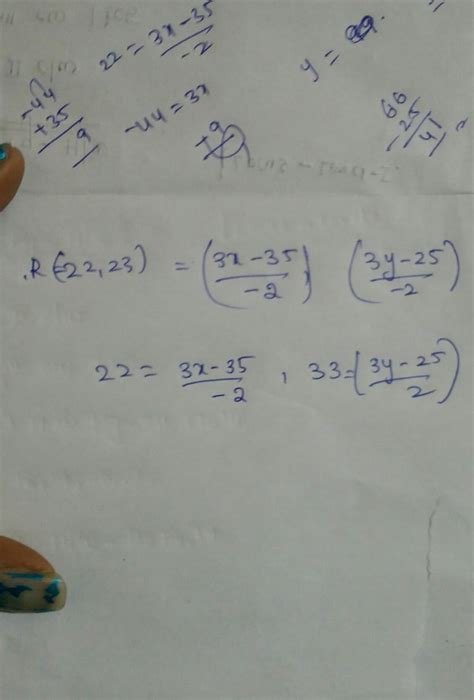 22 = 3x-35/-2
y =
-44
+35
9
-44 = 3x
+9
66
25
41
R(-22,23) = (3x-35/-2) (3y-25/-2)
22 = 3x-35/-2 , 33=(3y-25/2)